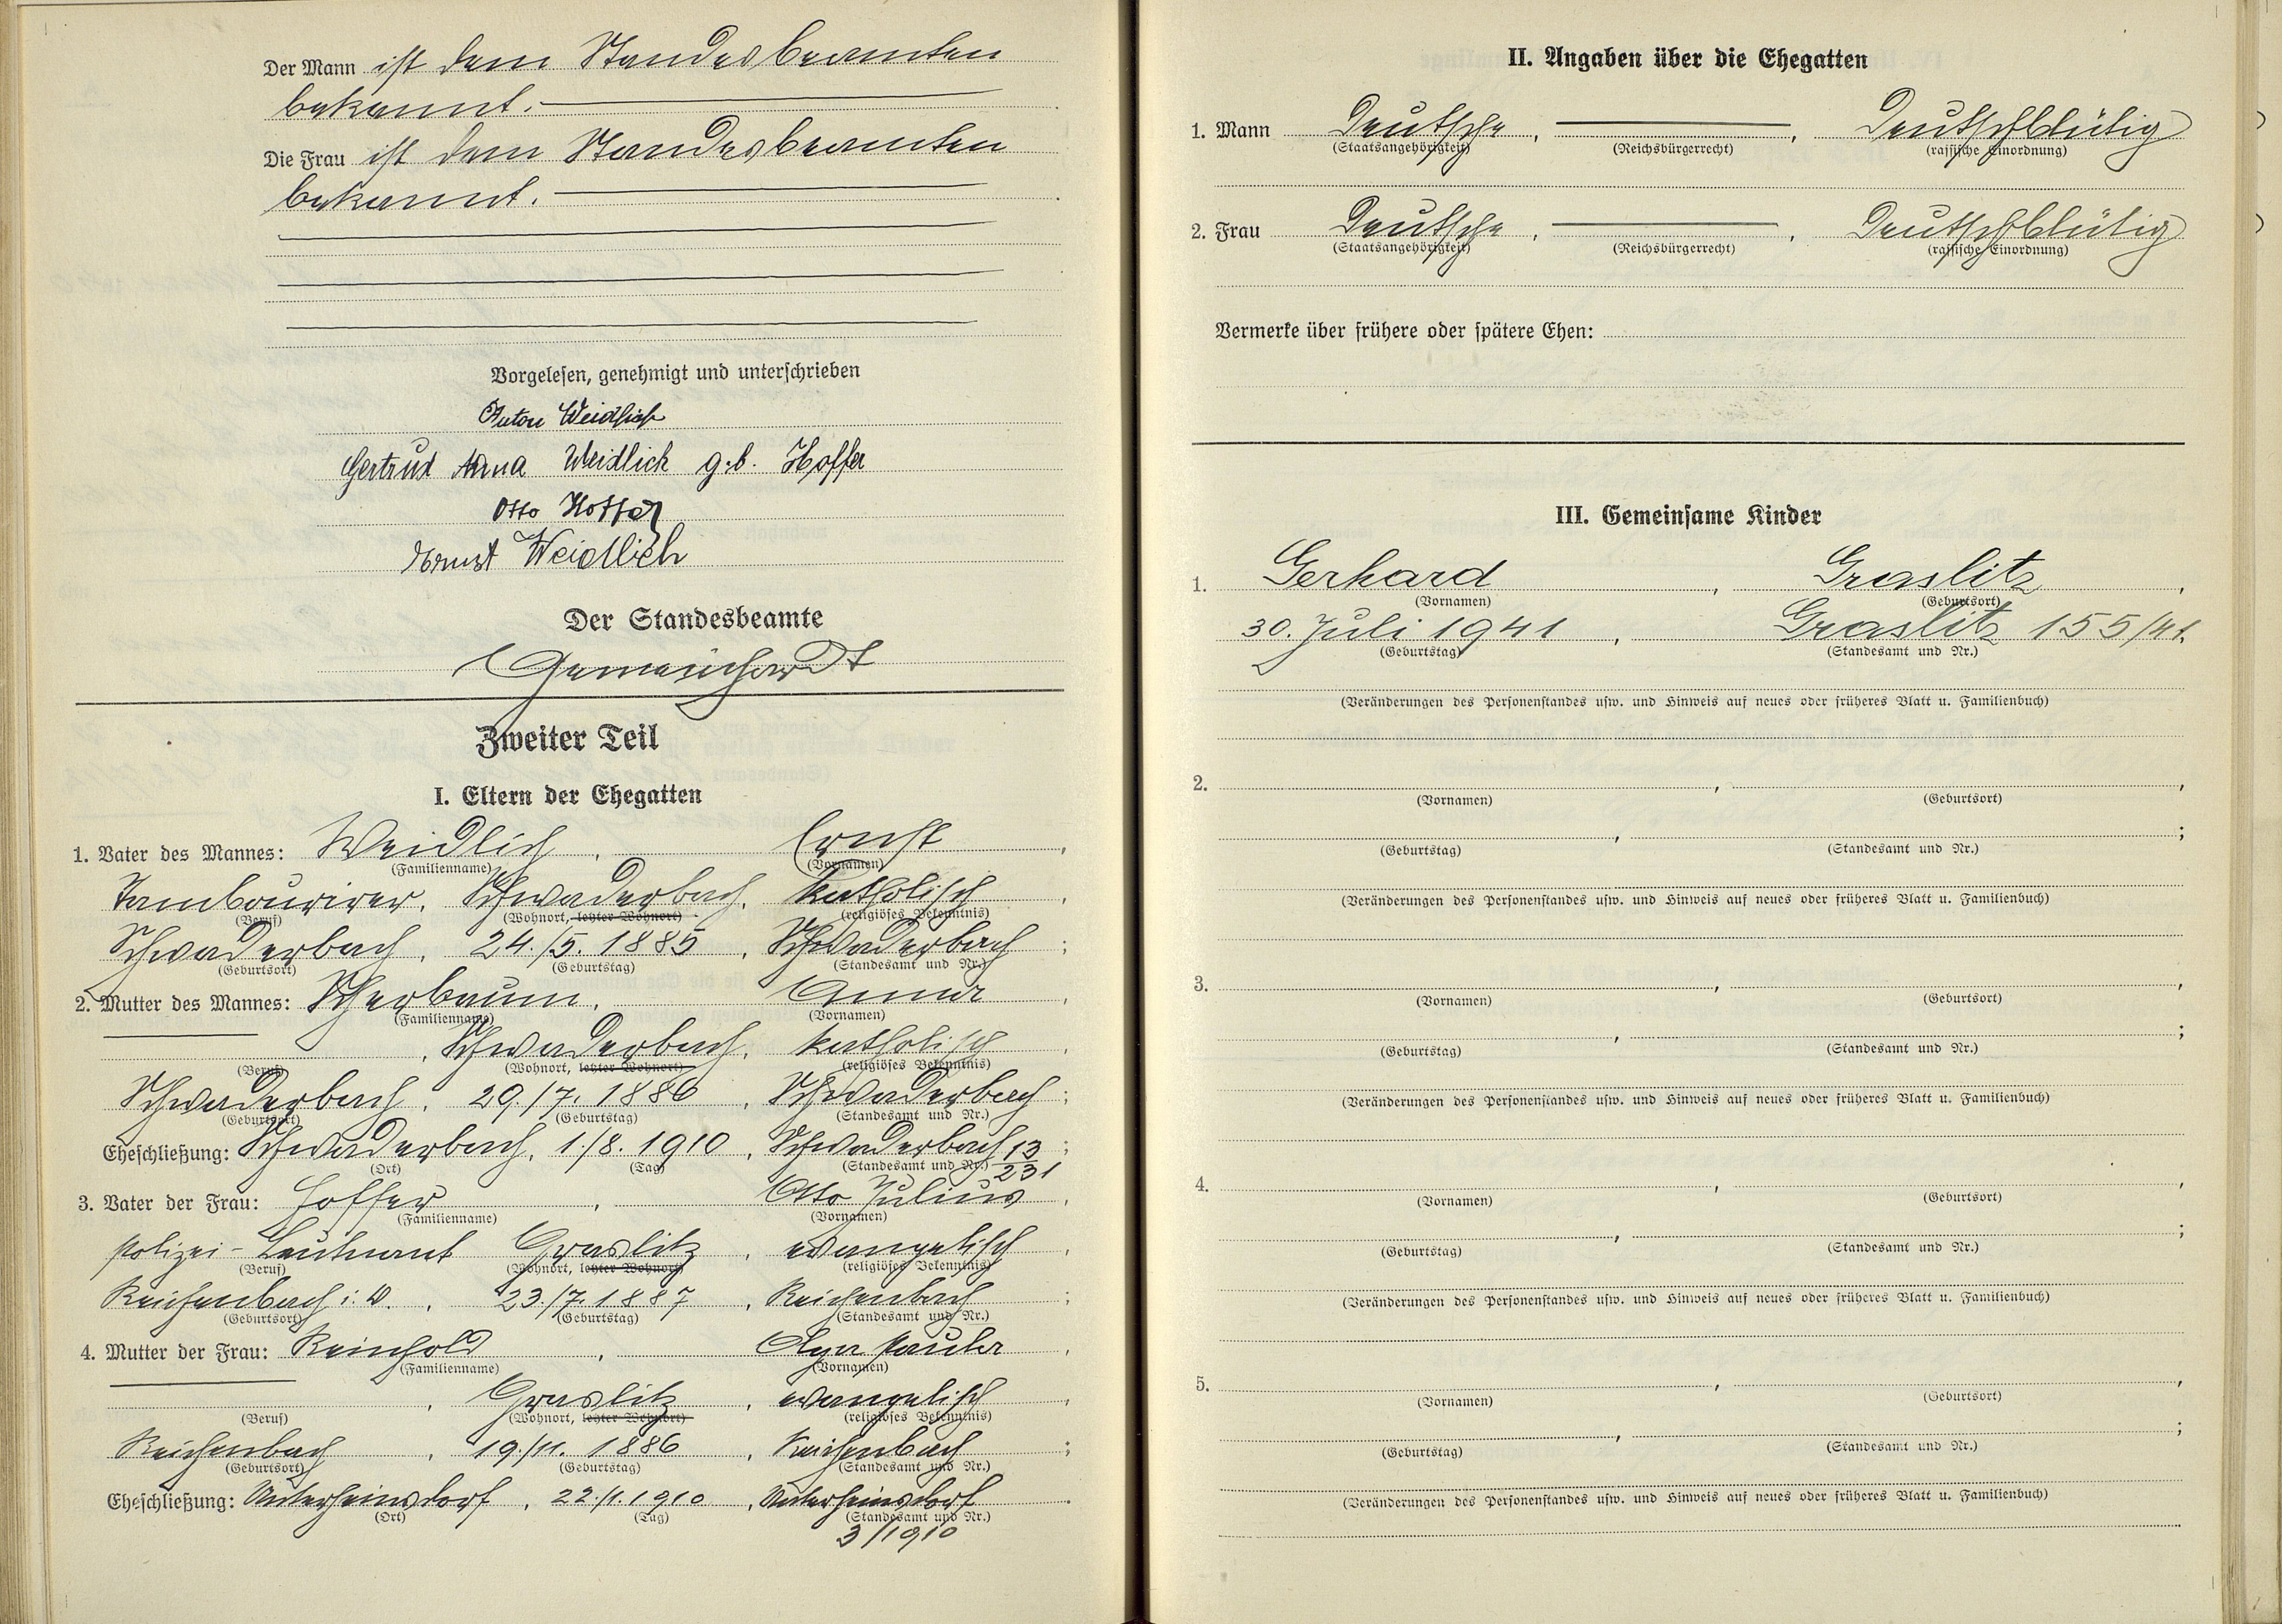 Der Mann ist dem Standesbeamten
bekannt.
Die Frau ist dem Standesbeamten
bekannt.
Vorgelesen, genehmigt und unterschrieben
Anton Weidlich
Gertrud Anna Weidlich geb. Hoffer
Otto Hoffer
Ernst Weidlich
Der Standesbeamte
Zweiter Teil
I. Eltern der Ehegatten
1. Vater des Mannes: Weidlich, Ernst,
(Familienname) (Vornamen)
Tambourirer, Schwaderbach, katholisch,
(Beruf) (Wohnort, letzter Wohnort) (religiöses Bekenntnis)
Schwaderbach, 24./5. 1885, Schwaderbach;
(Geburtsort) (Geburtstag) (Standesamt und Nr.)
2. Mutter des Mannes: Scherbaum, Anna,
(Familienname) (Vornamen)
, Schwaderbach, katholisch,
(Beruf) (Wohnort, letzter Wohnort) (religiöses Bekenntnis)
Schwaderbach, 29./7. 1886, Schwaderbach;
(Geburtsort) (Geburtstag) (Standesamt und Nr.)
Eheschließung: Schwaderbach, 1./8. 1910, Schwaderbach 13/231;
(Ort) (Tag) (Standesamt und Nr.)
3. Vater der Frau: Hoffer, Otto Julius,
(Familienname) (Vornamen)
Polizei-Leutnant Graslitz, evangelisch,
(Beruf) (Wohnort, letzter Wohnort) (religiöses Bekenntnis)
Reichenbach i. V., 23./7. 1887, Reichenbach;
(Geburtsort) (Geburtstag) (Standesamt und Nr.)
4. Mutter der Frau: Reinhold, Olga Paula,
(Familienname) (Vornamen)
, Graslitz, evangelisch,
(Beruf) (Wohnort, letzter Wohnort) (religiöses Bekenntnis)
Reichenbach, 19./11. 1886, Reichenbach;
(Geburtsort) (Geburtstag) (Standesamt und Nr.)
Eheschließung: Unterheinsdorf, 22./1. 1910, Unterheinsdorf.
(Ort) (Tag) (Standesamt und Nr.)
3/1910
II. Angaben über die Ehegatten
1. Mann Deutsche, , Deutschblütig
(Staatsangehörigkeit) (Reichsbürgerrecht) (rassische Einordnung)
2. Frau Deutsche, , Deutschblütig
(Staatsangehörigkeit) (Reichsbürgerrecht) (rassische Einordnung)
Vermerke über frühere oder spätere Ehen:
III. Gemeinsame Kinder
1. Gerhard, Graslitz,
(Vornamen) (Geburtsort)
30. Juli 1941, Graslitz 155/41.
(Geburtstag) (Standesamt und Nr.)
(Veränderungen des Personenstandes usw. und Hinweis auf neues oder früheres Blatt u. Familienbuch)
2. , ,
(Vornamen) (Geburtsort)
, ;
(Geburtstag) (Standesamt und Nr.)
(Veränderungen des Personenstandes usw. und Hinweis auf neues oder früheres Blatt u. Familienbuch)
3. , ,
(Vornamen) (Geburtsort)
, ;
(Geburtstag) (Standesamt und Nr.)
(Veränderungen des Personenstandes usw. und Hinweis auf neues oder früheres Blatt u. Familienbuch)
4. , ,
(Vornamen) (Geburtsort)
, ;
(Geburtstag) (Standesamt und Nr.)
(Veränderungen des Personenstandes usw. und Hinweis auf neues oder früheres Blatt u. Familienbuch)
5. , ,
(Vornamen) (Geburtsort)
, ;
(Geburtstag) (Standesamt und Nr.)
(Veränderungen des Personenstandes usw. und Hinweis auf neues oder früheres Blatt u. Familienbuch)